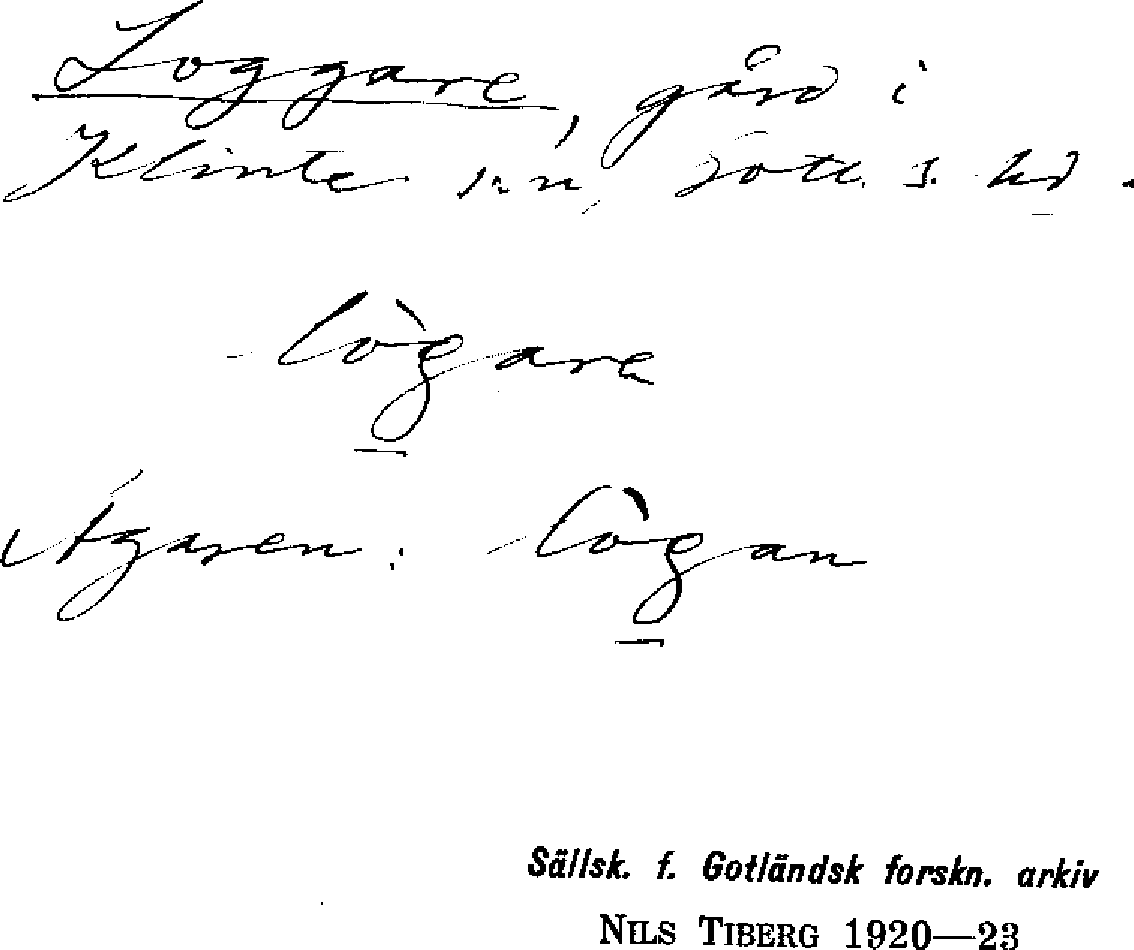 Loggare, gård i
Klinte sn, Gotl. s. hd.
lògare
Ägaren: lògan
Sällsk. f. Gotländsk forskn. arkiv
NILS TIBERG 1920—23